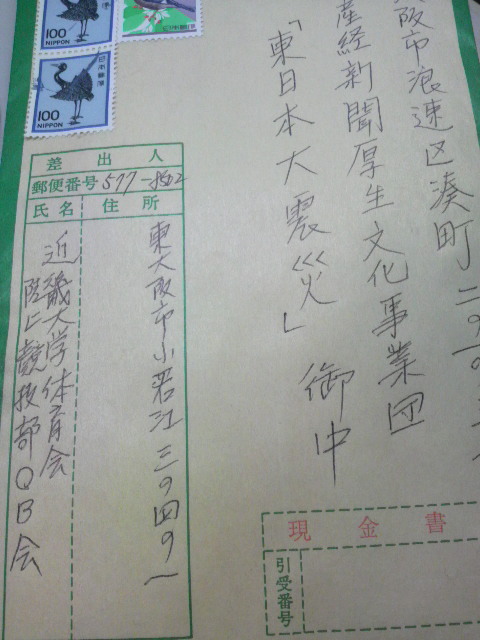 阪市浪速区湊町二の一の
産経新聞厚生文化事業団
「東日本大震災」御中
100
NIPPON
日本郵便
100
NIPPON
日本郵便
差出人
郵便番号 577-
氏名 住所
東大阪市小若江三の四の一
近畿大学体育会
陸上競技部OB会
現金書
引受番号